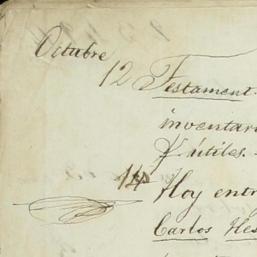 Octubre
12 Testament
inventari
y útiles.
14 Hoy entr
Carlos Hes